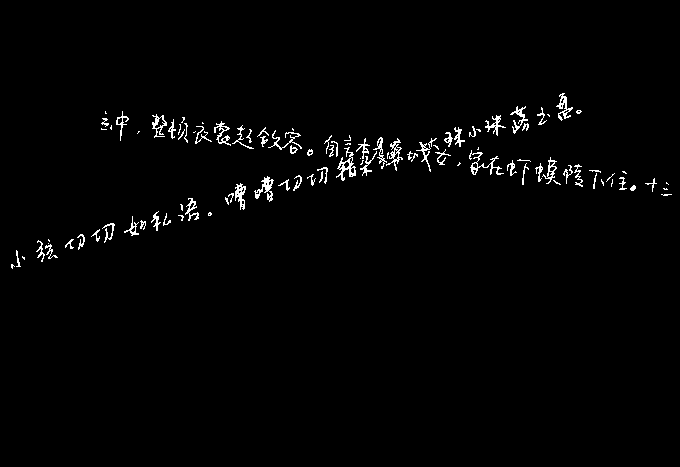 中，整顿衣裳起敛容。自言本是京城女，家在虾蟆陵下住。十三
小弦切切如私语。嘈嘈切切错杂弹，大珠小珠落玉盘。